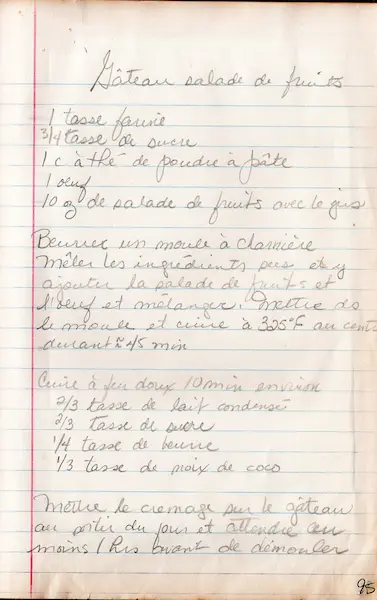 Gâteau salade de fruits
1 tasse farine
3/4 tasse de sucre
1 c à thé de poudre à pâte
1 oeuf
10 oz de salade de fruits avec le jus
Beurrer un moule à charnière
Mêler les ingrédients secs et y
ajouter la salade de fruits et
l'oeuf et mélanger. Mettre ds
le moule et cuire à 325°F au cent
durant ≈ 45 min
Cuire à feu doux 10 min environ
2/3 tasse de lait condensé
2/3 tasse de sucre
1/4 tasse de beurre
1/3 tasse de noix de coco
Mettre le cremage sur le gâteau
au sortir du four et attendre au
moins 1 hrs avant de démouler
95